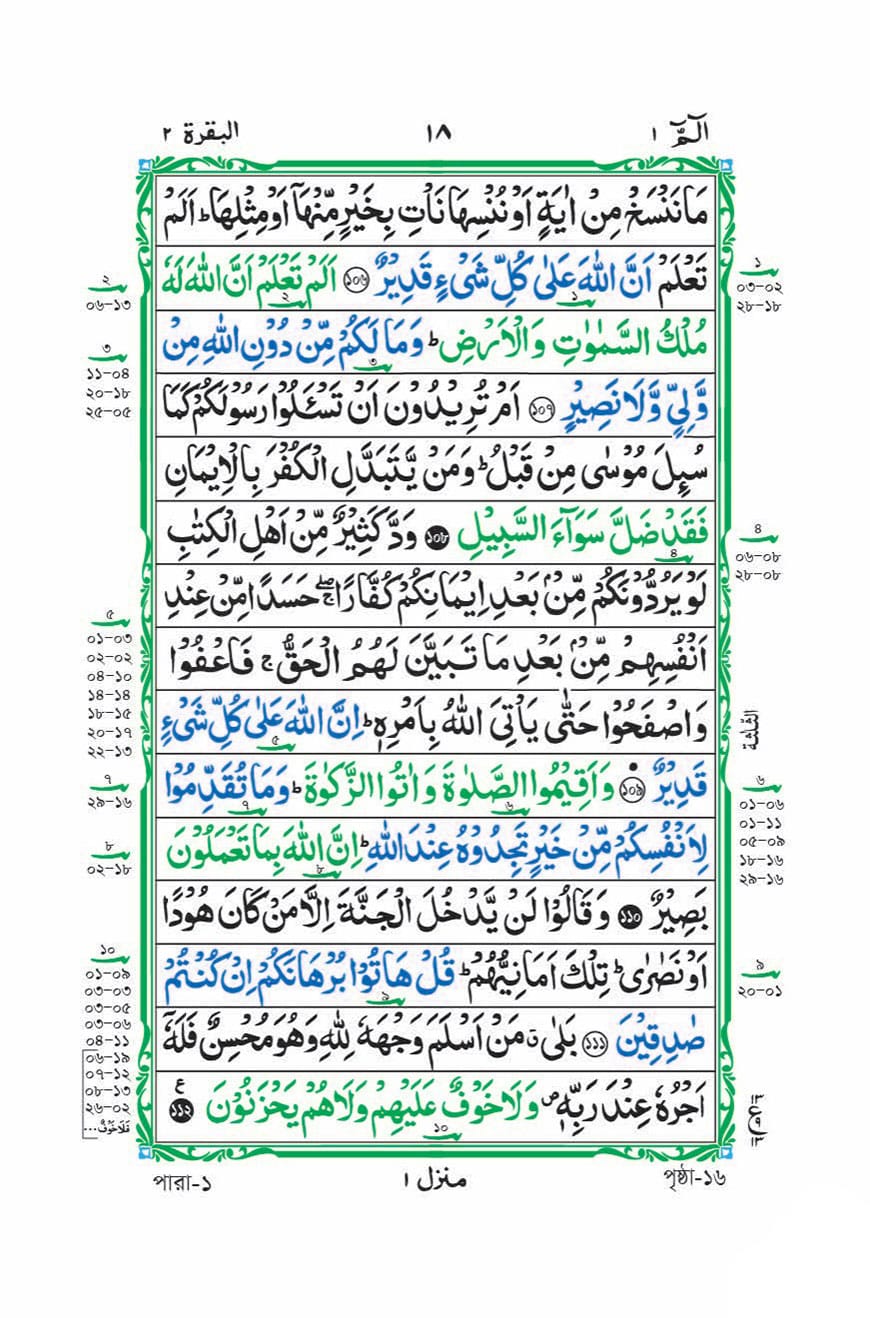 الٓمّٓ ١
١٨
البقرة ٢
مَا نَنْسَخْ مِنْ اٰيَةٍ اَوْ نُنْسِهَا نَاْتِ بِخَيْرٍ مِّنْهَاۤ اَوْ مِثْلِهَا ؕ اَلَمْ
تَعْلَمْ اَنَّ اللّٰهَ عَلٰى كُلِّ شَیْءٍ قَدِيْرٌ ১০৬ اَلَمْ تَعْلَمْ اَنَّ اللّٰهَ لَهٗ
مُلْكُ السَّمٰوٰتِ وَالْاَرْضِ ؕ وَمَا لَكُمْ مِّنْ دُوْنِ اللّٰهِ مِنْ
وَّلِيٍّ وَّلَا نَصِيْرٍ ১০৭ اَمْ تُرِيْدُوْنَ اَنْ تَسْـَٔلُوْا رَسُوْلَكُمْ كَمَا
سُئِلَ مُوْسٰى مِنْ قَبْلُ ؕ وَمَنْ يَّتَبَدَّلِ الْكُفْرَ بِالْاِيْمَانِ
فَقَدْ ضَلَّ سَوَآءَ السَّبِيْلِ ১০৮ وَدَّ كَثِيْرٌ مِّنْ اَهْلِ الْكِتٰبِ
لَوْ يَرُدُّوْنَكُمْ مِّنْۢ بَعْدِ اِيْمَانِكُمْ كُفَّارًا ۚۖ حَسَدًا مِّنْ عِنْدِ
اَنْفُسِهِمْ مِّنْۢ بَعْدِ مَا تَبَيَّنَ لَهُمُ الْحَقُّ ۚ فَاعْفُوْا
وَاصْفَحُوْا حَتّٰى يَاْتِيَ اللّٰهُ بِاَمْرِهٖ ؕ اِنَّ اللّٰهَ عَلٰى كُلِّ شَیْءٍ
قَدِيْرٌ ১০৯ وَاَقِيْمُوا الصَّلٰوةَ وَاٰتُوا الزَّكٰوةَ ؕ وَمَا تُقَدِّمُوْا
لِاَنْفُسِكُمْ مِّنْ خَيْرٍ تَجِدُوْهُ عِنْدَ اللّٰهِ ؕ اِنَّ اللّٰهَ بِمَا تَعْمَلُوْنَ
بَصِيْرٌ ১১০ وَقَالُوْا لَنْ يَّدْخُلَ الْجَنَّةَ اِلَّا مَنْ كَانَ هُوْدًا
اَوْ نَصٰرٰى ؕ تِلْكَ اَمَانِيُّهُمْ ؕ قُلْ هَاتُوْا بُرْهَانَكُمْ اِنْ كُنْتُمْ
صٰدِقِيْنَ ১১১ بَلٰى ۗ مَنْ اَسْلَمَ وَجْهَهٗ لِلّٰهِ وَهُوَ مُحْسِنٌ فَلَهٗۤ
اَجْرُهٗ عِنْدَ رَبِّهٖ ۪ وَلَا خَوْفٌ عَلَيْهِمْ وَلَا هُمْ يَحْزَنُوْنَ ১১২ ع
১
০৩-০২
২৮-১৮
৪
০৬-০৮
২৮-০৮
الثلثة
৬
০১-০৬
০১-১১
০৫-০৯
১৮-১৬
২৯-১৬
৯
২০-০১
২
০৬-১৩
৩
১১-০৪
২০-১৮
২৫-০৫
৫
০১-০৩
০২-০২
০৪-১০
১৪-১৪
১৮-১৫
২০-১৭
২২-১৩
৭
২৯-১৬
৮
০২-১৮
১০
০১-০৯
০৩-০৩
০৩-০৫
০৩-০৬
০৪-১১
০৬-১৯
০৭-১২
০৮-১৩
২৬-০২
فَلَاخَوْفٌ...
পৃষ্ঠা-১৬
منزل ١
পারা-১